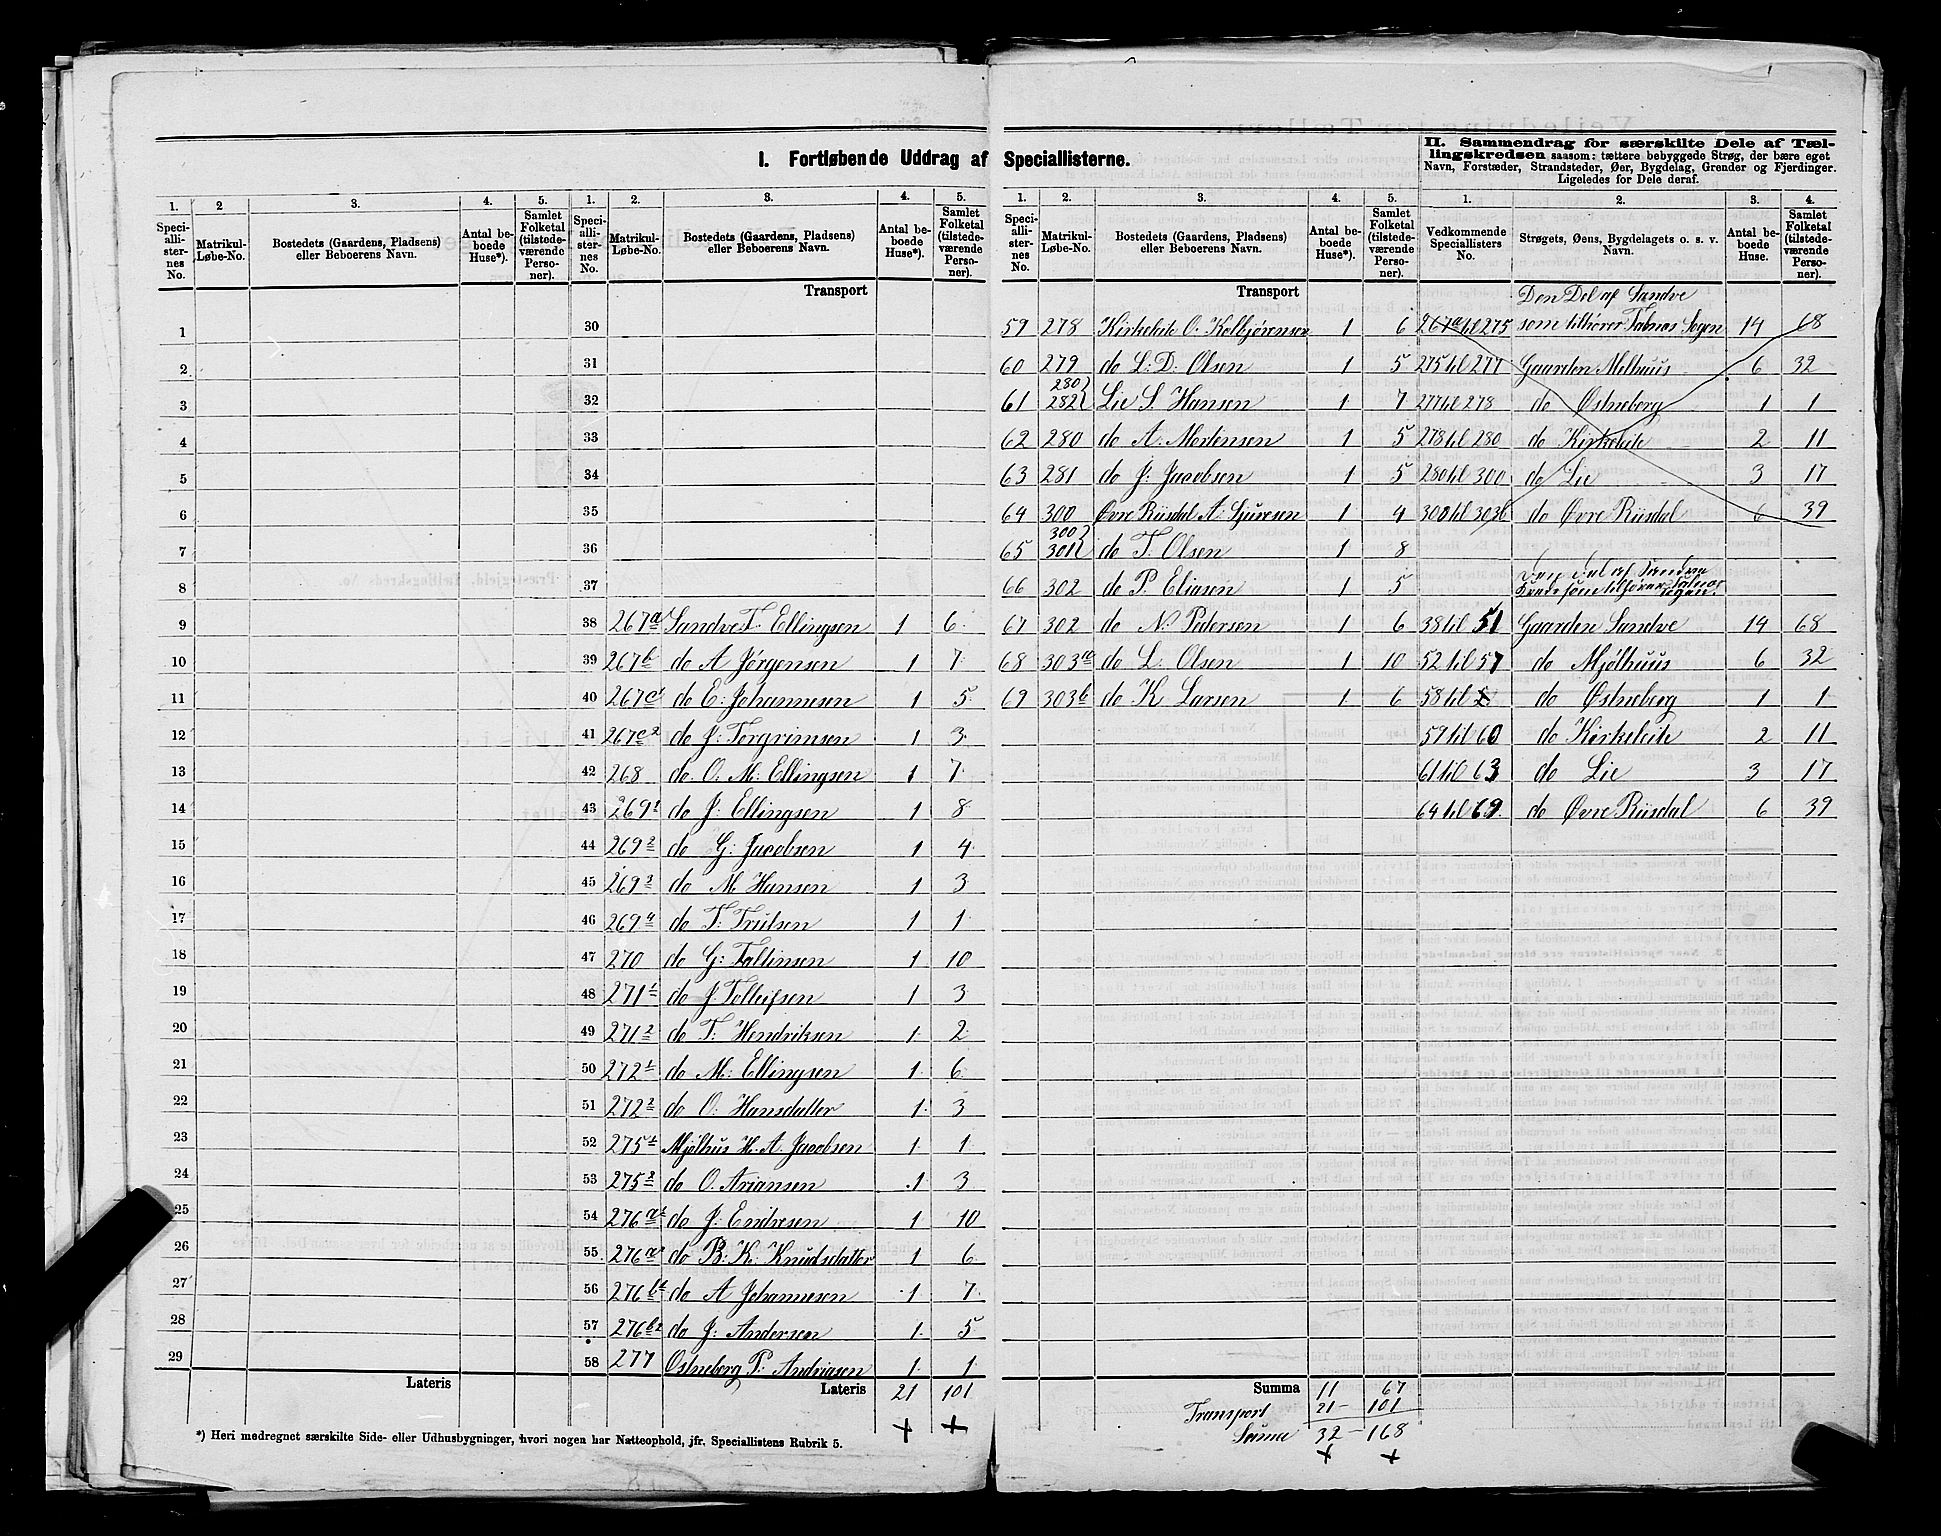 I. Fortløbende Uddrag af Speciallisterne.
II. Sammendrag for særskilte Dele af Tæl-
lingskredsen saasom: tættere bebyggede Strøg, der bære eget
Navn, Forstæder, Strandsteder, Øer, Bygdelag, Grender og Fjerdinger.
Ligeledes for Dele deraf.
1. 2 3. 4. 5. 1. 2. 3. 4. 5.
Speci-allister-nes No. Matrikul-Løbe-No. Bostedets (Gaardens, Pladsens) eller Beboerens Navn. Antal be-boede Huse*). Samlet Folketal (tilstede-værende Perso-ner). Speci-allister-nes No. Matrikul-Løbe-No. Bostedets (Gaardens, Pladsens) eller Beboerens Navn. Antal be-boede Huse*). Samlet Folketal (tilstede-værende Perso-ner).
Transport
1 30
2 31
3 32
4 33
5 34
6 35
7 36
8 37
9 38 267a Sandve T. Ellingsen 1 6
10 39 267b do A Jørgensen 1 7
11 40 267c1 do E: Johannesen 1 5
12 41 267c2 do J: Torgrimsen 1 3
13 42 268 do O. M: Ellingsen 1 7
14 43 269 1 do J: Ellingsen 1 8
15 44 269 2 do G: Jacobsen 1 4
16 45 269 3 do M Hansen 1 3
17 46 269 4 do T: Trulsen 1 1
18 47 270 do G: Faltinsen 1 10
19 48 271 1 do J. Tolleifsen 1 3
20 49 271 2 do T. Hendriksen 1 2
21 50 272 1 do M: Ellingsen 1 6
22 51 272 2 do O. Hansdatter 1 3
23 52 275 1 Mjølhus H. A. Jacobsen 1 1
24 53 275 2 do O. Ariansen 1 3
25 54 276 a1 do J: Endresen 1 10
26 55 276 a do B: K: Knudsdatter 1 6
27 56 276 b1 do A Johannesen 1 7
28 57 276 b2 do J: Andersen 1 5
29 58 277 Østneberg P: Andriasen 1 1
Lateris Lateris 21 101
*) Heri medregnet særskilte Side- eller Udhusbygninger, hvori nogen har Natteophold, jfr. Speciallistens Rubrik 5.
1. 2. 3. 4. 5. 1. 2. 3. 4.
Speci-allister-nes No. Matrikul-Løbe-No. Bostedets (Gaardens, Pladsens) eller Beboerens Navn. Antal be-boede Huse*). Samlet Folketal (tilstede-værende Perso-ner). Vedkommende Speciallisters No. Strøgets, Øens, Bygdelagets o. s. v. Navn. Antal be-boede Huse. Samlet Folketal (tilstede-værende Perso-ner).
Transport Den Del af Sandve
59 278 Kirkeleite O. Kolbjørensen 1 6 267a til 275 som tilhører Falnes Sogn 14 68
60 279 do L: D: Olsen 1 5 275 til 277 Gaarden Melhuus 6 32
61 280 282 Lie S. Hansen 1 7 277 til 278 do Østneberg 1 1
62 280 do A. Mortensen 1 5 278 til 280 do Kirkeleite 2 11
63 281 do J: Jacobsen 1 5 280 til 300 do Lie 3 17
64 300 Øvre Riisdal A: Sjursen 1 4 300 til 303b do Øvre Riisdal 6 39
65 300 301 do T. Olsen 1 8
66 302 do P. Eliasen 1 5 Den Del af Sandve
67 302 do N. Pedersen 1 6 38 til 51 Gaarden Sandve 14 68
68 303 a do L. Olsen 1 10 52 til 57 do Mjølhuus 6 32
69 303 b do K Larsen 1 6 58 til do Østneberg 1 1
59 til 60 do Kirkeleite 2 11
61 til 63 do Lie 3 17
64 til 69. do Øvre Riisdal 6 39
Summa 11 67
Transport 21 - 101
Suma 32 - 168